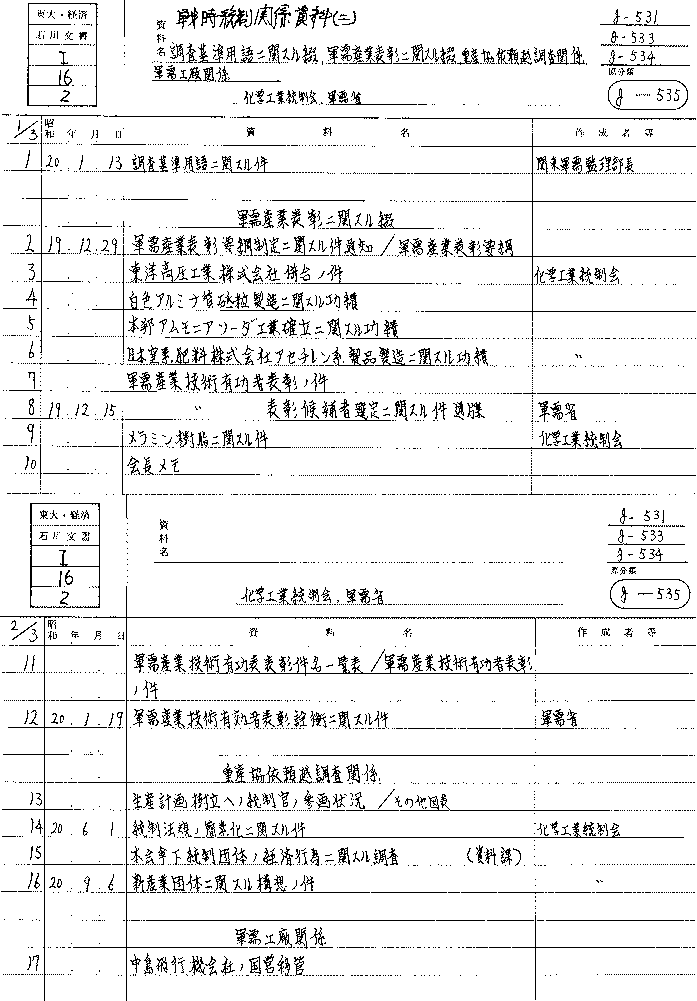 東大・経済
石川文書
I
16
2
資料名
戦時統制関係資料(二)
調査基準用語ニ関スル綴,軍需産業表彰ニ関スル綴,重産協依頼越調査関係
軍需工廠関係
化学工業統制会,軍需省
J-531
J-533
J-534
原分類
J-535
1/3 昭和 年 月 日 資料名 作成者等
1 20.1.13 調査基準用語ニ関スル件 関東軍需監理部長
軍需産業表彰ニ関スル綴
2 19.12.29 軍需産業表彰要綱制定ニ関スル件通知/軍需産業表彰要綱
3 東洋高圧工業株式会社 ノ件 化学工業統制会
4 白色アルミナ質砥粒製造ニ関スル功績
5 本邦アムモニアソーダ工業確立ニ関スル功績
6 日本窒素肥料株式会社アセチレン系製品製造ニ関スル功績 〃
7 軍需産業技術有功者表彰ノ件
8 19.12.15 〃 表彰候補者選定ニ関スル件通牒 軍需省
9 メラミン樹脂ニ関スル件 化学工業統制会
10 会長メモ
東大・経済
石川文書
I
16
2
資料名
化学工業統制会,軍需省
J-531
J-533
J-534
原分類
J-535
2/3 昭和 年 月 日 資料名 作成者等
11 軍需産業技術有功表表彰件名一覧表/軍需産業技術有功者表彰
ノ件
12 20.1.19 軍需産業技術有効者表彰詮衡ニ関スル件 軍需省
重産協依頼越調査関係
13 生産計画樹立ヘノ統制官ノ参画状況/その他回長
14 20.6.1 統制法規ノ簡素化ニ関スル件 化学工業統制会
15 本会傘下統制団体ノ経済行為ニ関スル調査 (資料課)
16 20.9.6 新産業団体ニ関スル構想ノ件 〃
軍需工廠関係
17 中島飛行機会社ノ国営移管